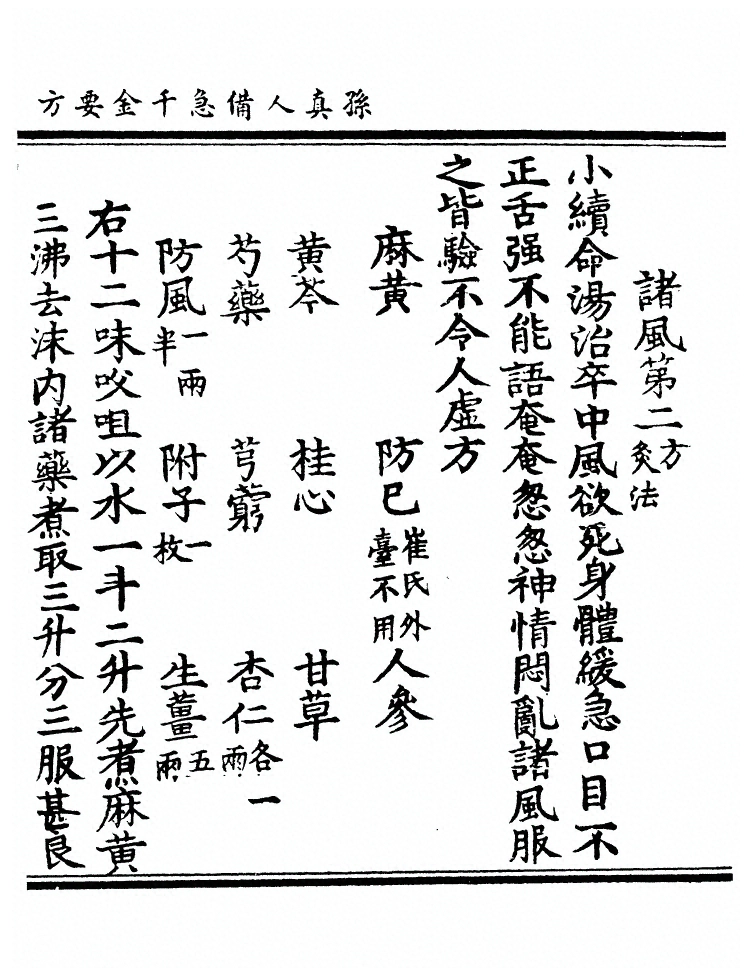 孫真人備急千金要方
諸風第二方灸法
小續命湯治卒中風欲死身體緩急口目不
正舌强不能語奄奄忽忽神情悶亂諸風服
之皆驗不令人虛方
麻黄 防巳崔氏外臺不用 人參
黄芩 桂心 甘草
芍藥 芎藭 杏仁各一兩
防風一兩半 附子一枚 生薑五兩
右十二味㕮咀以水一斗二升先煮麻黄
三沸去沫内諸藥煮取三升分三服甚良